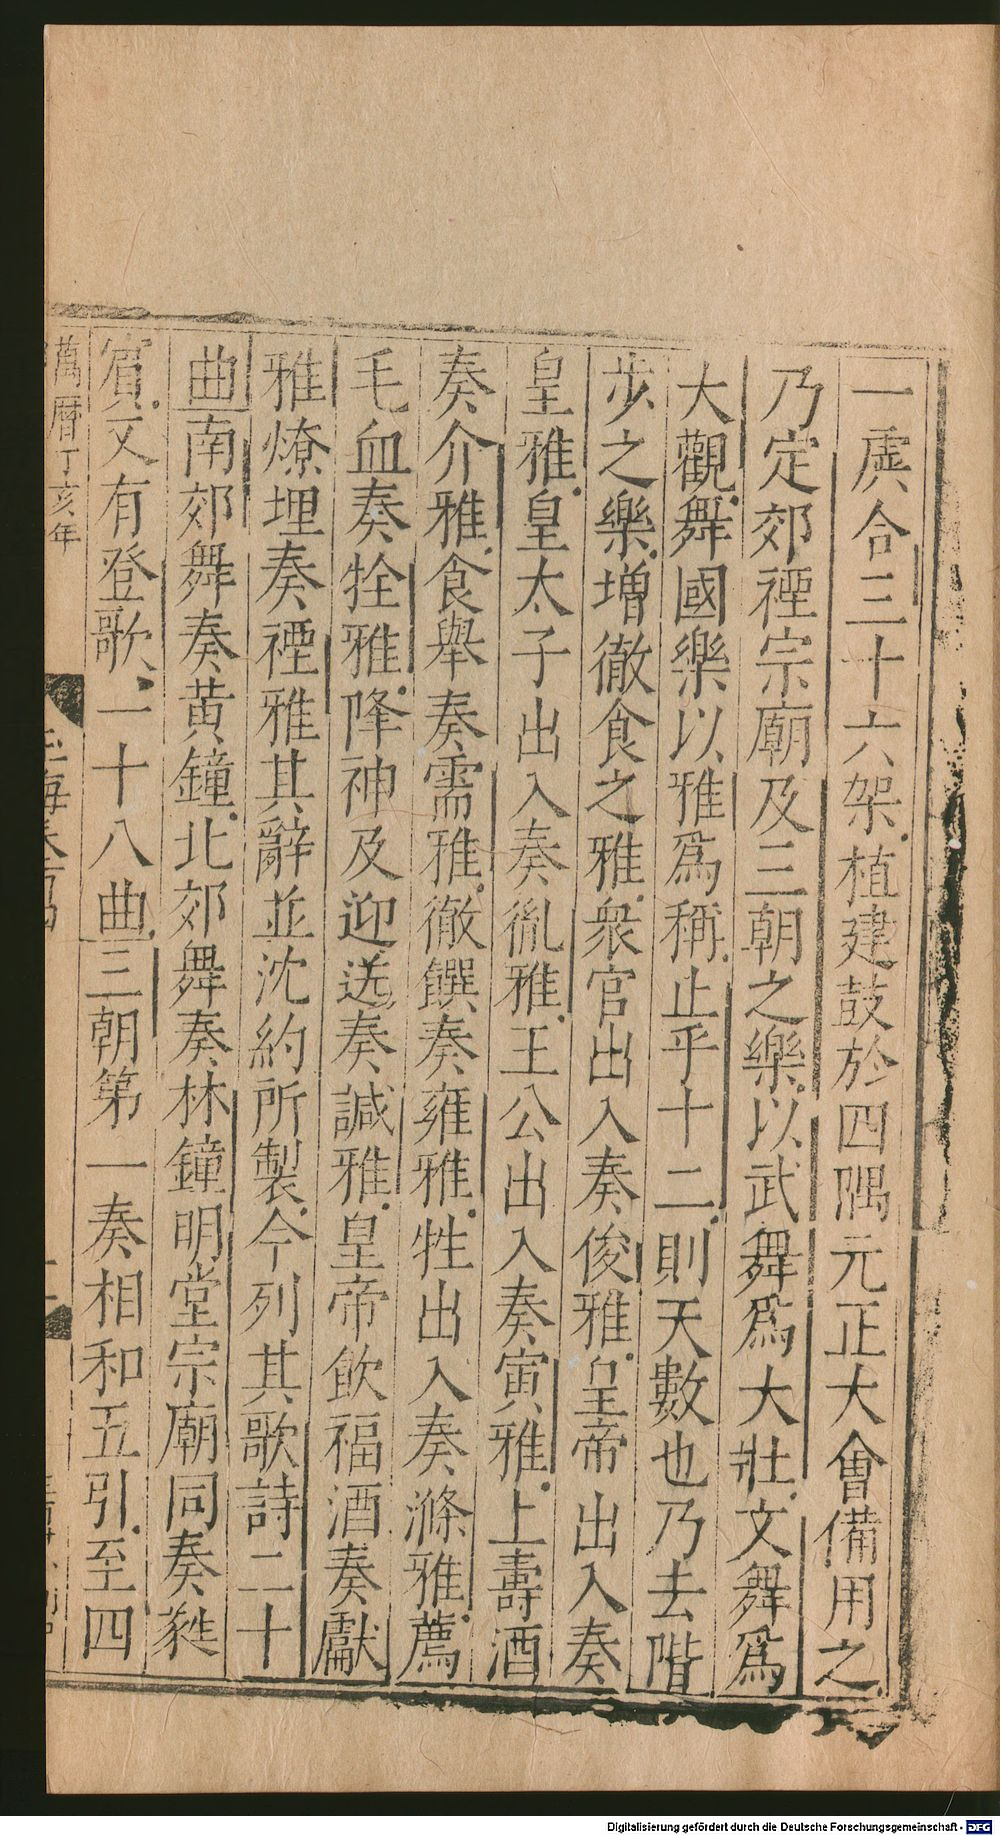 一虡合三十六架植建鼓於四隅元正大會備用之
乃定郊禋宗廟及三朝之樂以武舞爲大壯文舞爲
大觀舞國樂以雅爲稱止乎十二則天數也乃去階
步之樂增徹食之雅衆官出入奏俊雅皇帝出入奏
皇雅皇太子出入奏胤雅王公出入奏寅雅上壽酒
奏介雅食舉奏需雅徹饌奏雍雅牲出入奏滌雅薦
毛血奏牷雅降神及迎送奏諴雅皇帝飲福酒奏獻
雅燎埋奏禋雅其辭並沈約所製今列其歌詩二十
曲南郊舞奏黃鐘北郊舞奏林鐘明堂宗廟同奏蕤
賔文有登歌一十八曲三朝第一奏相和五引至四
萬曆丁亥年
Digitalisierung gefördert durch die Deutsche Forschungsgemeinschaft - DFG